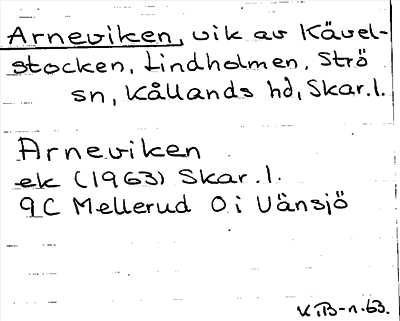 Arneviken, vik av Kävel-
stocken, Lindholmen, Strö
sn, Kållands hd, Skar.l.
Arneviken
ek (1963) Skar.l.
9C Mellerud O i Vänsjö
KiB-n.63.